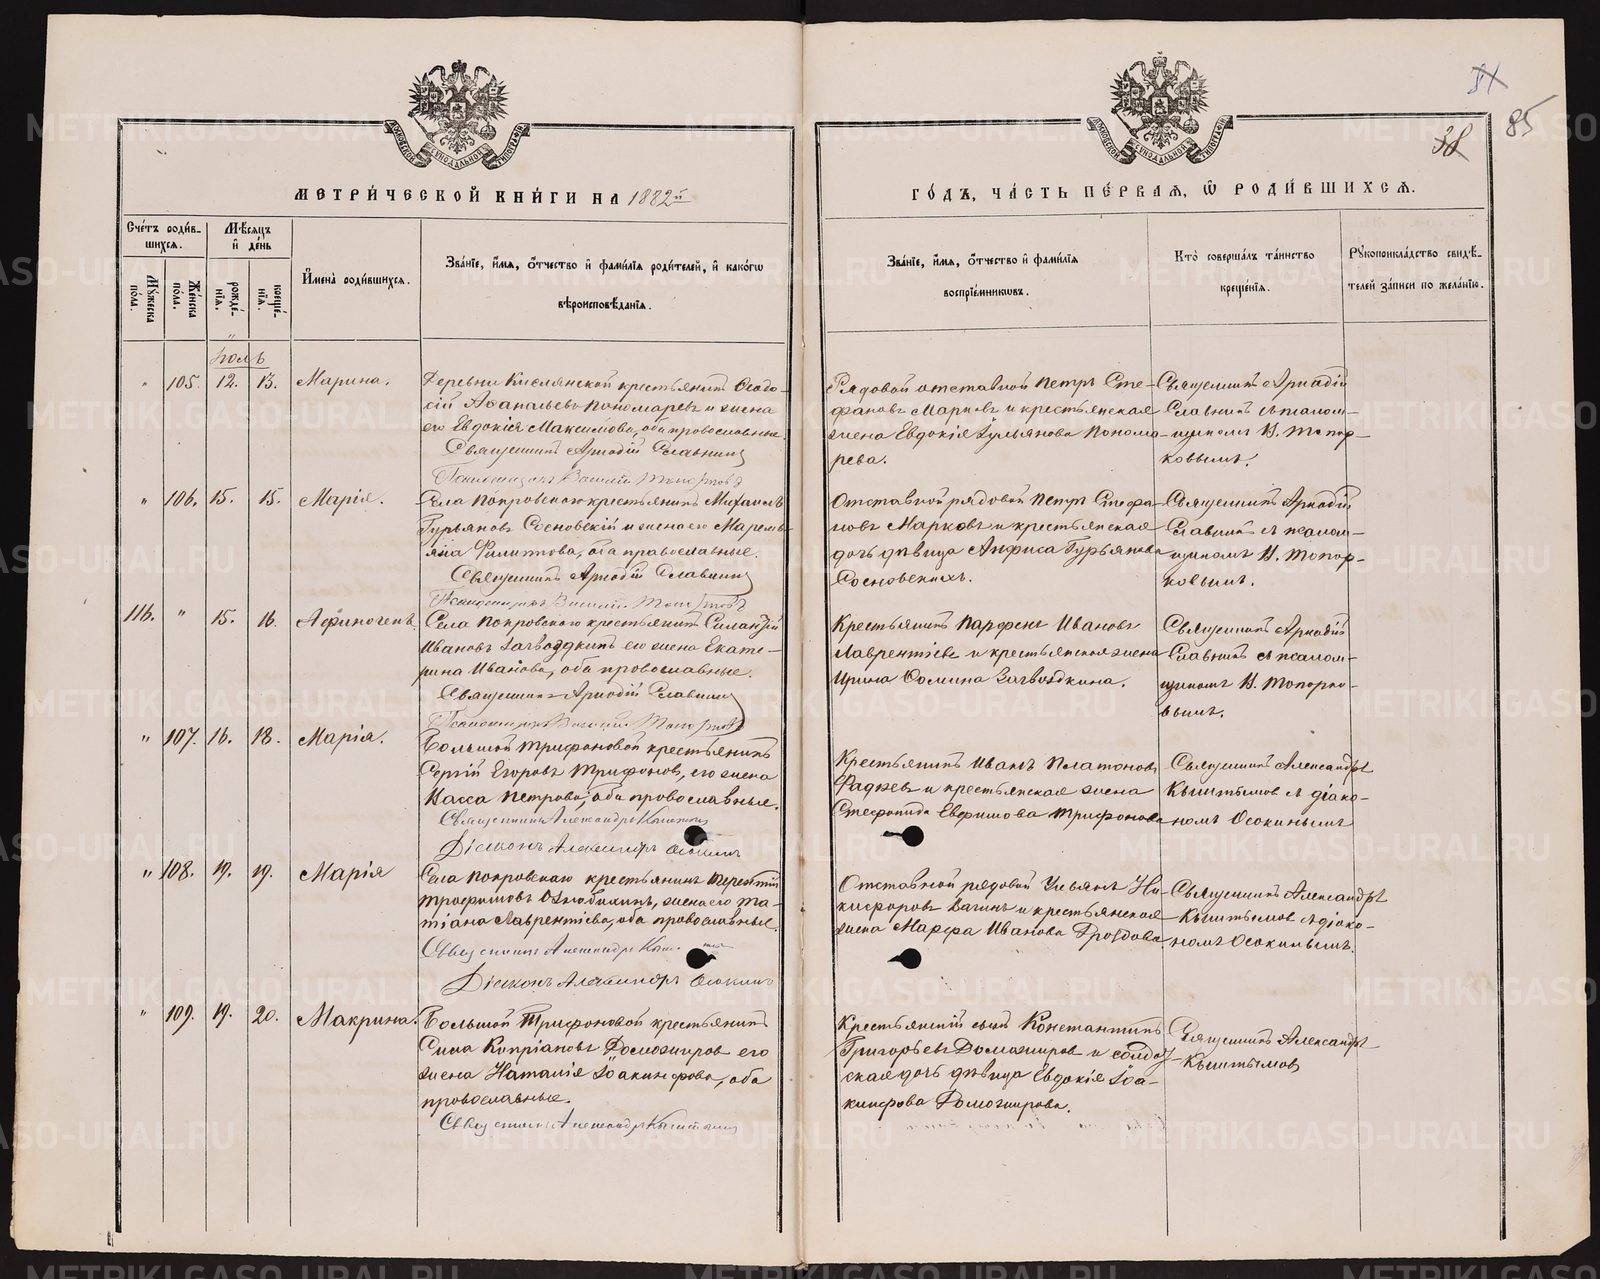 МЕТРИ́ЧЕСКОЙ КНИ́ГИ НА 1882й
ГО́ДЪ, ЧА́СТЬ ПЕ́РВАЯ, Ѿ РОДИ́ВШИХСЯ.
38
85
Сче́тъ роди́в-
шихся.
Мужеска пола.
Женска пола.
Мѣсяцъ
и день
рождé-
нія.
креще́-
нія.
Имена̀ роди́вшихся.
Зва́ніе, и́мя, о́тчество и фами́лія роди́телей, и како́гѡ
вѣроисповѣ́данія.
Зва́ніе, и́мя, о́тчество и фами́лія
воспріе́мниковъ.
Кто̀ соверша́лъ та́инство
креще́нія.
Рукоприкла́дство свидѣ́-
телей за́писи по жела́нію.
Іюль
" 105. 12. 13. Марина.
Деревни Кислянской крестьянинъ Ѳеодо-
сій Аѳанасьевъ Пономаревъ и жена
его Евдокія Максимова, оба православные.
Священникъ Аркадій Славнинъ
Псаломщикъ Василій Топорковъ
Рядовой отставной Петръ Сте-
фановъ Марковъ и крестьянская
жена Евдокія Гульянова Понома-
рева.
Священникъ Аркадій
Славнинъ съ псалом-
щикомъ В. Топор-
ковымъ.
" 106. 15. 15. Марія.
Села Покровскаго крестьянинъ Михаилъ
Гурьяновъ Сосновскій и жена его Маремь-
яна Филиппова, оба православные.
Священникъ Аркадій Славнинъ
Псаломщикъ Василій Топорковъ
Отставной рядовой Петръ Стефа-
новъ Марковъ и крестьянская
дочь дѣвица Анфиса Гурьянова
Сосновскихъ.
Священникъ Аркадій
Славнинъ съ псалом-
щикомъ В. Топор-
ковымъ.
116. " 15. 16. Аѳиногенъ.
Села Покровскаго крестьянинъ
Ивановъ Загвоздкинъ его жена Екате-
рина Иванова, оба православные.
Священникъ Аркадій Славнинъ
Псаломщикъ Василій Топорковъ
Крестьянинъ Парфенъ Ивановъ
Лаврентіевъ и крестьянская жена
Ирина Ѳомина Загвоздкина.
Священникъ Аркадій
Славнинъ съ псалом-
щикомъ В. Топорко-
вымъ.
" 107. 16. 18. Марія.
Большой Трифоновой крестьянинъ
Сергій Егоровъ Трифоновъ, его жена
Васса Петрова, оба православные.
Священникъ Александръ Кыштымовъ
Діаконъ Александръ Осокинъ
Крестьянинъ Иванъ Платоновъ
Фадѣевъ и крестьянская жена
Стефанида Евфимова Трифонова
Священникъ Александръ
Кыштымовъ съ діако-
номъ Осокинымъ
" 108. 19. 19. Марія
Села Покровскаго крестьянинъ Терентій
Трофимовъ Ознобихинъ, жена его Та-
тіана Лаврентіева, оба православные.
Священникъ Александръ
Діаконъ Александръ Осокинъ
Отставной рядовой Ульянъ Ни-
кифоровъ Вагинъ и крестьянская
жена Марфа Иванова Дроздова.
Священникъ Александръ
Кыштымовъ съ діако-
номъ Осокинымъ.
" 109. 19. 20. Макрина.
Большой Трифоновой крестьянинъ
Сила Кипріановъ Доможировъ его
жена Наталія Іоакинфова, оба
православные.
Священникъ Александръ Кыштымовъ
Крестьянскій сынъ Константинъ
Григорьевъ Доможировъ и солдат-
ская дочь дѣвица Евдокія Іоа-
кинфова Доможирова.
Священникъ Александръ
Кыштымовъ
METRIKI.GASO-URAL.RU